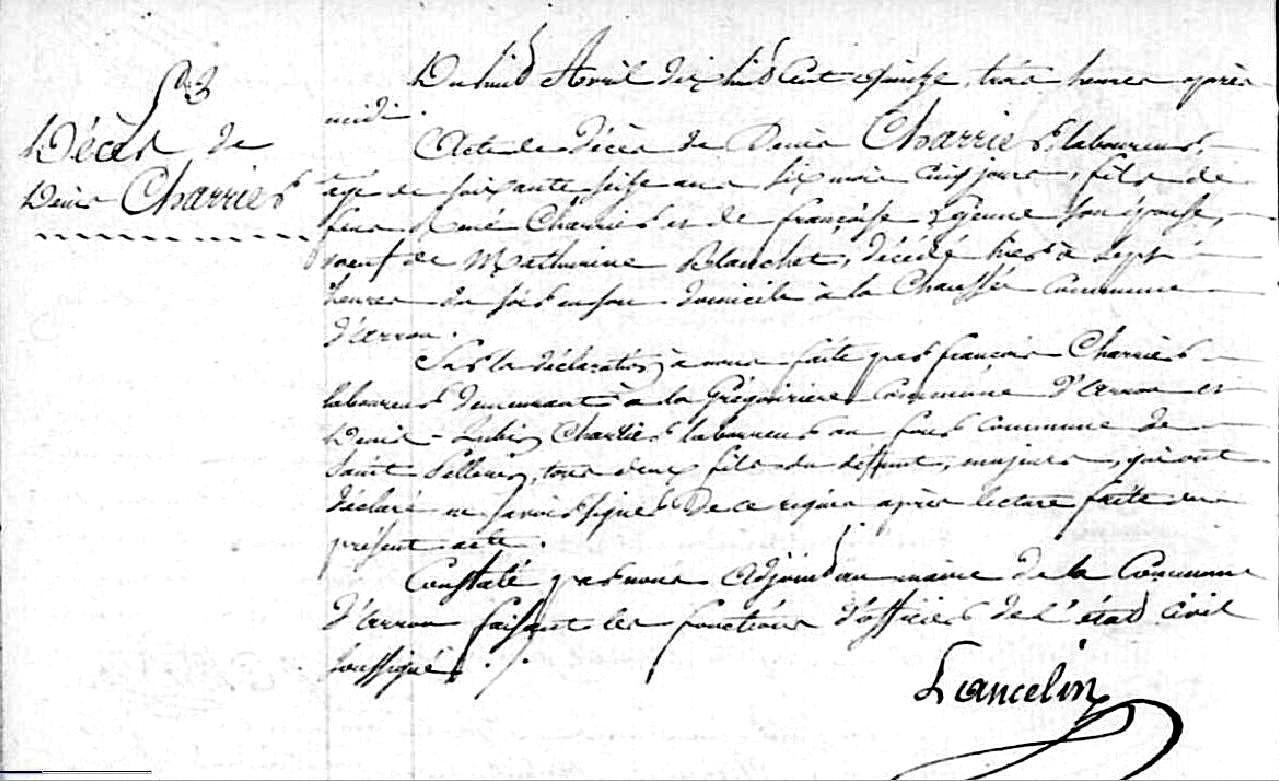 Décès de
Denis Charrier
Du huit Avril dix huit Cent quinze, trois heures après
midi.
Acte de décès de Denis Charrier, laboureur,
âgé de soixante seize ans six mois cinq jours, fils de
feux René Charrier et de françoise Lejeune son épouse,
veuf de Mathurine Blanchet, décédé hier à sept
heures du soir en son domicile à la Chaussée Commune
d'arrou.
Sur la déclaration à nous faite par françois Charrier
laboureur demeurant à la Grégoirière Commune d'arrou et
Denis-Lubin Charrier laboureur au four Commune de
Saint Pellerin, tous deux fils du deffunt, majeurs, qui ont
déclaré ne savoir signer De ce requis après lecture faite du
présent acte.
Constaté par nous Adjoint au maire de la Commune
d'arrou faisant les fonctions d'officier de l'état Civil
soussigné.
Lancelin